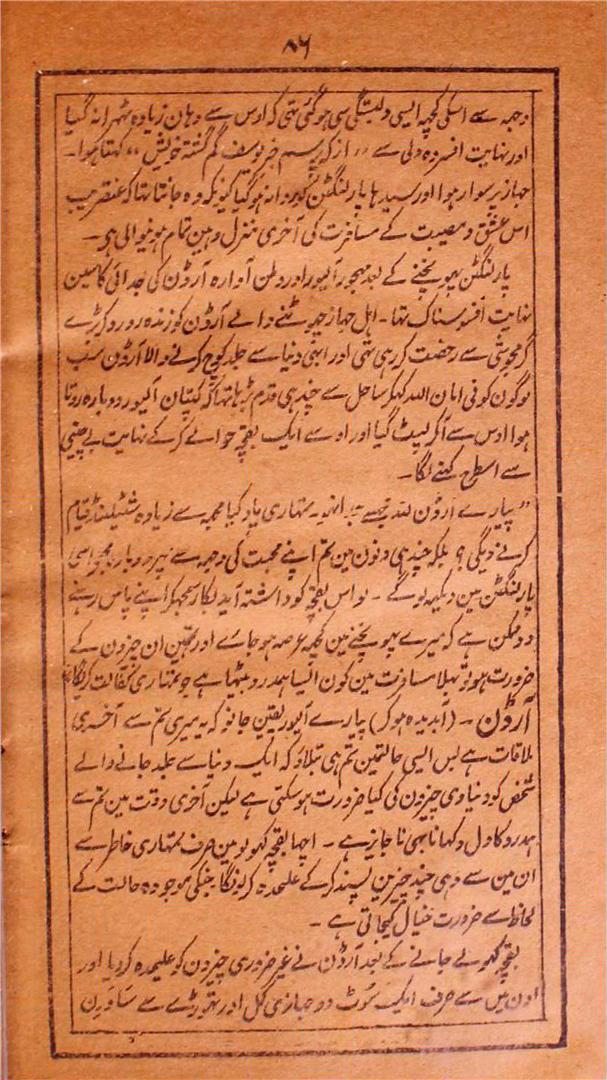 ۸۶
وجہ سے اسکی کچہہ ایسی دلبستگی سی ہوگئی تہی کہ اوس سے وہان زیادہ ٹہرا نہ گیا
اور نہایت افسردہ دلی سے ،، از کہ پرسم خبر یوسف گم گشتہ خویش ،، کہتا ہوا۔
جہاز پر سوار ہوا اور سیدہا پارلنگٹن کو روانہ ہوگیا کیونکہ وہ جانتا تہا کہ عنقریب
اس عشق و مصیبت کے مسافرت کی آخری منزل وہین تمام ہونیوالی ہی۔
پارلنگٹن پہونچنے کے بعد مہجور آلیور اور وطن آوارہ آرڈن کی جدائی کا سین
نہایت افسوسناک تہا۔ اہل جہاز چہوٹنے والے آرڈن کو زندہ رو رو کر بڑے
گرمجوشی سے رخصت کر رہی تہی اور ابہی دنیا سے جلد کوچ کرنے والا آرڈن سب
لوگون کو فی امان اللہ کہکر ساحل سے چند ہی قدم بڑہا تہا کہ کپتان آلیور دوبارہ روتا
ہوا اوس سے آکر لپٹ گیا اور اوسے ایک بقچہ حوالے کرکے نہایت بے چینی
سے اسطرح کہنے لگا۔
،، پیارے آرڈن للہ مجہے نہ تمہاری یاد کیا مجہہ سے زیادہ شٹیلنڈ قیام
کرنے دیگی؟ بلکہ چند ہی دنون مین تم اپنے محبت کی وجہ سے پہر دوبارہ مجہہ اسی
پارلنگٹن مین دیکہہ لوگے۔ لو اس بقچہ کو داشتہ آید بکار سمجہکر اپنے پاس رہنے
دو ممکن ہے کہ میرے پہونچنے مین کچہہ عرصہ ہو جائے اور تمہین ان چیزون کے
ضرورت ہو تو بہلا مسافرت مین کون ایسا ہمدرد بیٹہا ہے جو تمہاری کفالت کریگا۔
آرڈن۔ (آبدیدہ ہوکر) پیارے آلیور یقین جانو کہ یہ میری تم سے آخری
ملاقات ہے بس ایسی حالتمین تم ہی بتلاؤ کہ ایک دنیا سے جلد جانے والے
شخص کو دنیاوی چیزون کی کیا ضرورت ہوسکتی ہے لیکن آخری وقت مین تم سے
ہمدرد کا دل دکہانا بہی ناجایز ہے۔ اچہا بقچہ کہولو مین صرف تمہاری خاطر سے
ان مین سے وہی چند چیزین پسند کرکے علیحدہ کرلونگا جنکی موجودہ حالت کے
لحاظ سے ضرورت خیال کیجاتی ہے۔
بقچہ کہولے جانے کے بعد آرڈن نے غیر ضروری چیزون کو علیحدہ کردیا اور
اون مین سے صرف ایک سوٹ دو جہازی کمل اور تہوڑے سے ساورین